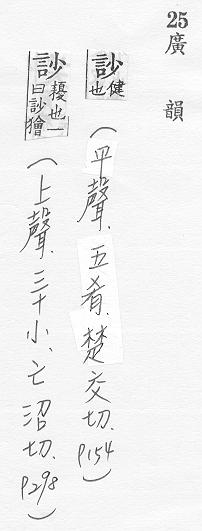 25 廣韻
訬 健也(平聲.五肴.楚交切.P154)
訬 擾也一曰訬獪(上聲.三十小.亡沼切.P298)